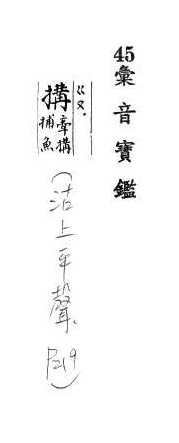 45彙音寶鑑
ㄍㄡ.
搆牽搆捕魚
(沽上平聲, P219)